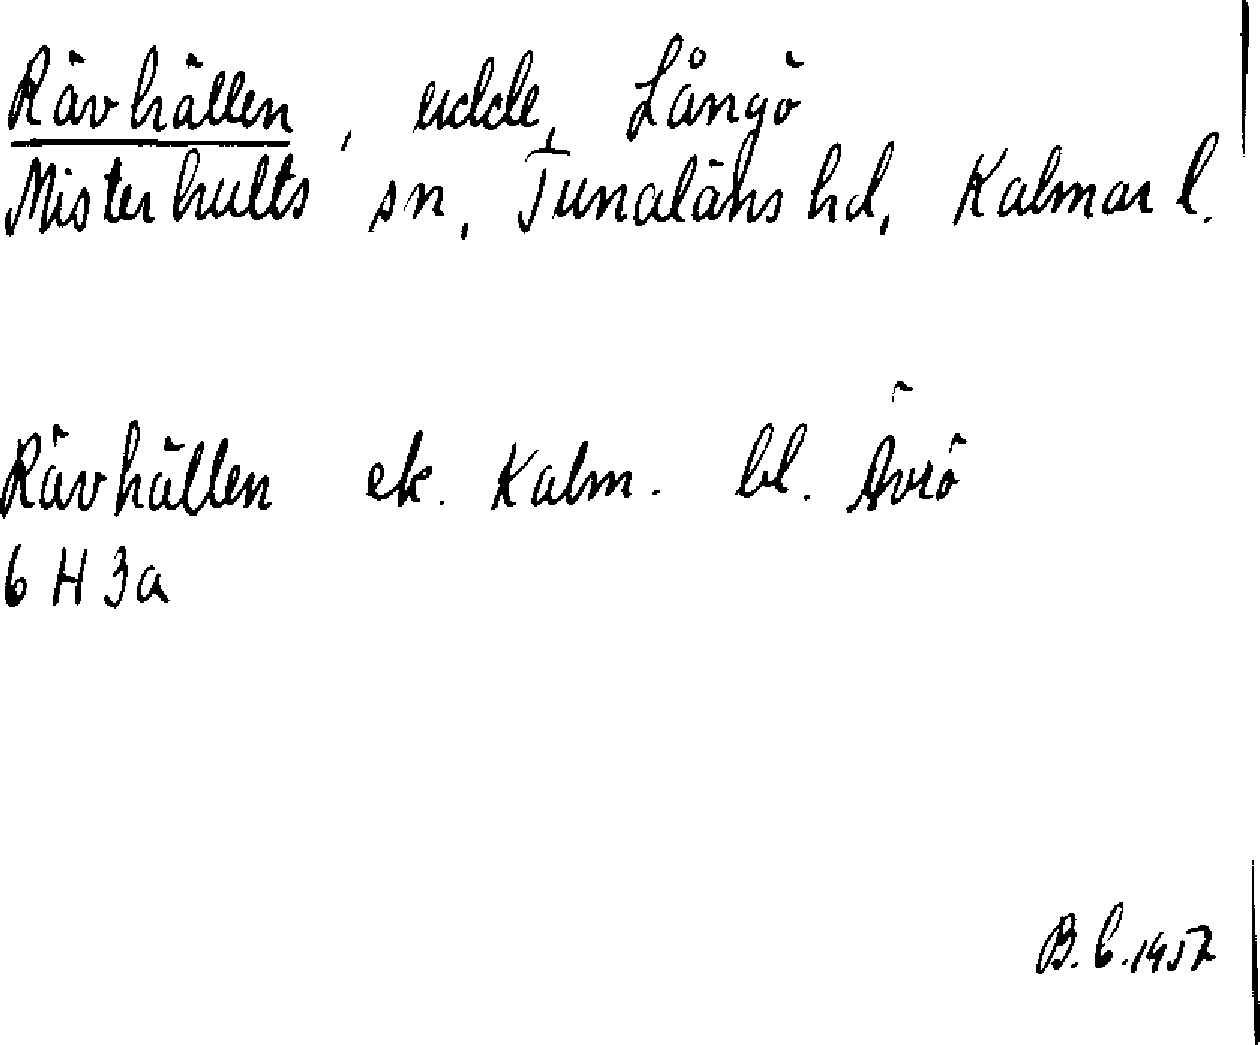 Rävhällen, udde, Långö
Misterhults sn, Tunaläns hd, Kalmar l.
Rävhällen ek. Kalm. bl. Ävrö
6 H 3a
B. C. 1952